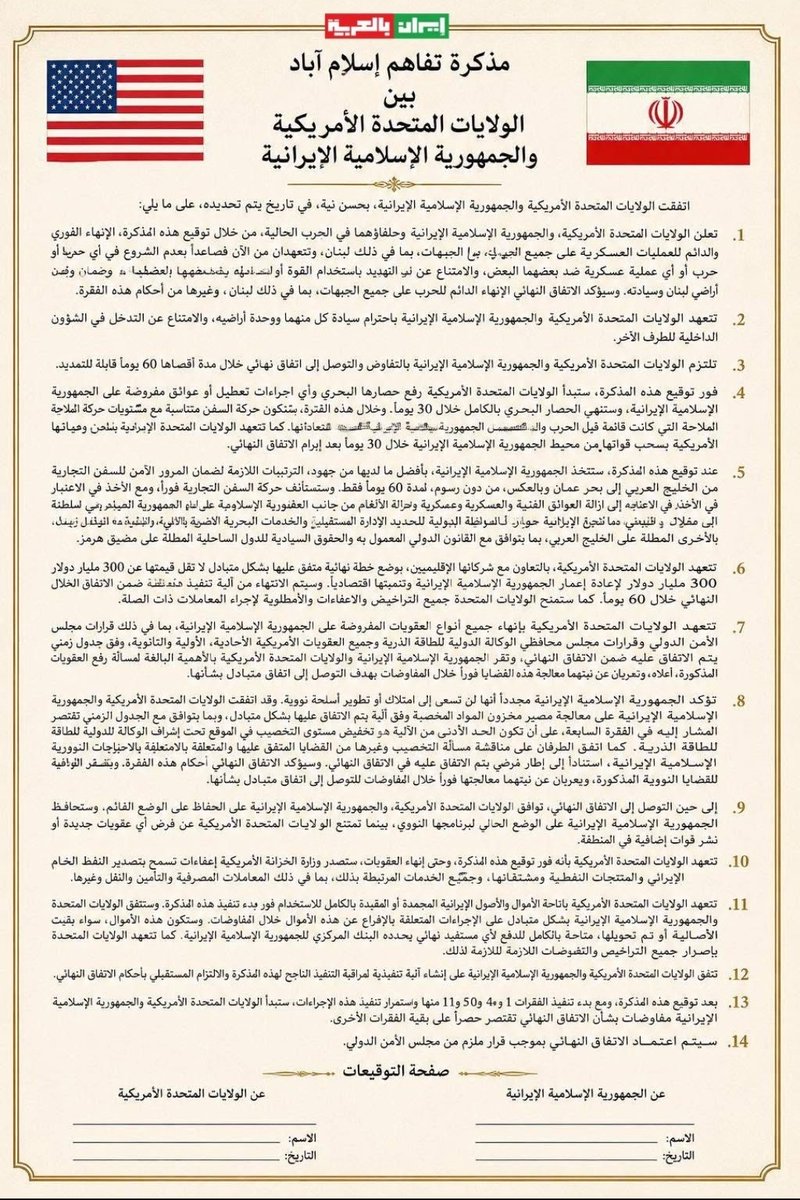 إيران بالعربية
مذكرة تفاهم إسلام آباد
بين
الولايات المتحدة الأمريكية
والجمهورية الإسلامية الإيرانية
اتفقت الولايات المتحدة الأمريكية والجمهورية الإسلامية الإيرانية، بحسن نية، في تاريخ يتم تحديده، على ما يلي:
1. تعلن الولايات المتحدة الأمريكية، والجمهورية الإسلامية الإيرانية وحلفاؤهما في الحرب الحالية، من خلال توقيع هذه المذكرة، الإنهاء الفوري
والدائم للعمليات العسكرية على جميع الجبهات، بما في ذلك لبنان، وتتعهدان من الآن فصاعداً بعدم الشروع في أي
حرب أو أي عملية عسكرية ضد بعضهما البعض، والامتناع عن التهديد باستخدام القوة أو
أراضي لبنان وسيادته. وسيؤكد الاتفاق النهائي الإنهاء الدائم للحرب على جميع الجبهات، بما في ذلك لبنان، وغيرها من أحكام هذه الفقرة.
2. تتعهد الولايات المتحدة الأمريكية والجمهورية الإسلامية الإيرانية باحترام سيادة كل منهما ووحدة أراضيه، والامتناع عن التدخل في الشؤون
الداخلية للطرف الآخر.
3. تلتزم الولايات المتحدة الأمريكية والجمهورية الإسلامية الإيرانية بالتفاوض والتوصل إلى اتفاق نهائي خلال مدة أقصاها 60 يوماً قابلة للتمديد.
4. فور توقيع هذه المذكرة، ستبدأ الولايات المتحدة الأمريكية رفع حصارها البحري وأي اجراءات تعطيل أو عوائق مفروضة على الجمهورية
الإسلامية الإيرانية، وستنهي الحصار البحري بالكامل خلال 30 يوماً. وخلال هذه الفترة، ستكون حركة السفن متناسبة مع مستويات حركة الملاحة
الملاحة التي كانت قائمة قبل الحرب الجمهورية كما تتعهد الولايات المتحدة
الأمريكية بسحب قواتها من محيط الجمهورية الإسلامية الإيرانية خلال 30 يوماً بعد إبرام الاتفاق النهائي.
5. عند توقيع هذه المذكرة، ستتخذ الجمهورية الإسلامية الإيرانية، بأفضل ما لديها من جهود، الترتيبات اللازمة لضمان المرور الآمن للسفن التجارية
من الخليج العربي إلى بحر عمان وبالعكس، من دون رسوم، لمدة 60 يوماً فقط. وستستأنف حركة السفن التجارية فوراً، ومع الأخذ في الاعتبار
في الأخذ في إزالة العوائق الفنية والعسكرية الألغام من جانب الجمهورية
الإدارة والخدمات البحرية
بالأخرى المطلة على الخليج العربي، بما يتوافق مع القانون الدولي المعمول به والحقوق السيادية للدول الساحلية المطلة على مضيق هرمز.
6. تتعهد الولايات المتحدة الأمريكية، بالتعاون مع شركائها الإقليميين، بوضع خطة نهائية متفق عليها بشكل متبادل لا تقل قيمتها عن 300 مليار دولار
300 مليار دولار لإعادة إعمار الجمهورية الإسلامية الإيرانية وتنميتها اقتصادياً. وسيتم الانتهاء من آلية تنفيذ ضمن الاتفاق الخلال
النهائي خلال 60 يوماً. كما ستمنح الولايات المتحدة جميع التراخيص والاعفاءات والأمطلوية لإجراء المعاملات ذات الصلة.
7. تتعهد الولايات المتحدة الأمريكية بإنهاء جميع أنواع العقوبات المفروضة على الجمهورية الإسلامية الإيرانية، بما في ذلك قرارات مجلس
الأمن الدولي وقرارات مجلس محافظي الوكالة الدولية للطاقة الذرية وجميع العقوبات الأمريكية الأحادية، الأولية والثانوية، وفق جدول زمني
يتم الاتفاق عليه ضمن الاتفاق النهائي، وتقر الجمهورية الإسلامية الإيرانية والولايات المتحدة الأمريكية بالأهمية البالغة لمسألة رفع العقوبات
المذكورة، أعلاه، وتعربان عن نيتهما معالجة هذه القضايا فوراً خلال المفاوضات بهدف التوصل إلى اتفاق متبادل بشأنها.
8. تؤكد الجمهورية الإسلامية الإيرانية مجدداً أنها لن تسعى إلى امتلاك أو تطوير أسلحة نووية. وقد اتفقت الولايات المتحدة الأمريكية والجمهورية
الإسلامية الإيرانية على معالجة مصير مخزون المواد المخصبة وفق آلية يتم الاتفاق عليها بشكل متبادل، وبما يتوافق مع الجدول الزمني تقتصر
المشار إليه في الفقرة السابعة، على أن تكون الحد الأدنى من الآلية هو تخفيض مستوى التخصيب في الموقع تحت إشراف الوكالة الدولية للطاقة
للطاقة الذرية. كما اتفق الطرفان على مناقشة مسألة التخصيب وغيرها من القضايا المتفق عليها والمتعلقة النووية
الإسلامية الإيرانية، استناداً إلى إطار مُرضي يتم الاتفاق عليه في الاتفاق النهائي. وسيؤكد الاتفاق النهائي أحكام هذه الفقرة.
للقضايا النووية المذكورة، ويعربان عن نيتهما معالجتها فوراً خلال المفاوضات للتوصل إلى اتفاق متبادل بشأنها.
9. إلى حين التوصل إلى الاتفاق النهائي، توافق الولايات المتحدة الأمريكية، والجمهورية الإسلامية الإيرانية على الحفاظ على الوضع القائم. وستحافظ
الجمهورية الإسلامية الإيرانية على الوضع الحالي لبرنامجها النووي، بينما تمتنع الولايات المتحدة الأمريكية عن فرض أي عقوبات جديدة أو
نشر قوات إضافية في المنطقة.
10. تتعهد الولايات المتحدة الأمريكية بأنه فور توقيع هذه المذكرة، وحتى إنهاء العقوبات، ستصدر وزارة الخزانة الأمريكية إعفاءات تسمح بتصدير النفط الخام
الإيراني والمنتجات النفطية ومشتقاتها، وجميع الخدمات المرتبطة بذلك، بما في ذلك المعاملات المصرفية والتأمين والنقل وغيرها.
11. تتعهد الولايات المتحدة الأمريكية باتاحة الأموال والأصول الإيرانية المجمدة أو المقيدة بالكامل للاستخدام فور بدء تنفيذ هذه المذكرة. وستتفق الولايات المتحدة
والجمهورية الإسلامية الإيرانية بشكل متبادل على الإجراءات المتعلقة بالإفراع عن هذه الأموال خلال المفاوضات. وستكون هذه الأموال، سواء بقيت
الأصالية أو تم تحويلها، متاحة بالكامل للدفع لأي مستفيد نهائي يحدده البنك المركزي للجمهورية الإسلامية الإيرانية. كما تتعهد الولايات المتحدة
بإصرار جميع التراخيص والتفوضات اللازمة لللازمة لذلك.
12. تتفق الولايات المتحدة الأمريكية والجمهورية الإسلامية الإيرانية على إنشاء آلية تنفيذية لمراقبة التنفيذ الناجح لهذه المذكرة والالتزام المستقبلي بأحكام الاتفاق النهائي.
13. بعد توقيع هذه المذكرة، ومع بدء تنفيذ الفقرات 1 و4 و50 و11 منها واستمرار تنفيذ هذه الإجراءات، ستبدأ الولايات المتحدة الأمريكية والجمهورية الإسلامية
الإيرانية مفاوضات بشأن الاتفاق النهائي تقتصر حصراً على بقية الفقرات الأخرى.
14. سيتم اعتماد الاتفاق النهائي بموجب قرار ملزم من مجلس الأمن الدولي.
صفحة التوقيعات
عن الجمهورية الإسلامية الإيرانية
عن الولايات المتحدة الأمريكية
الاسم:
الاسم:
التاريخ:
التاريخ: